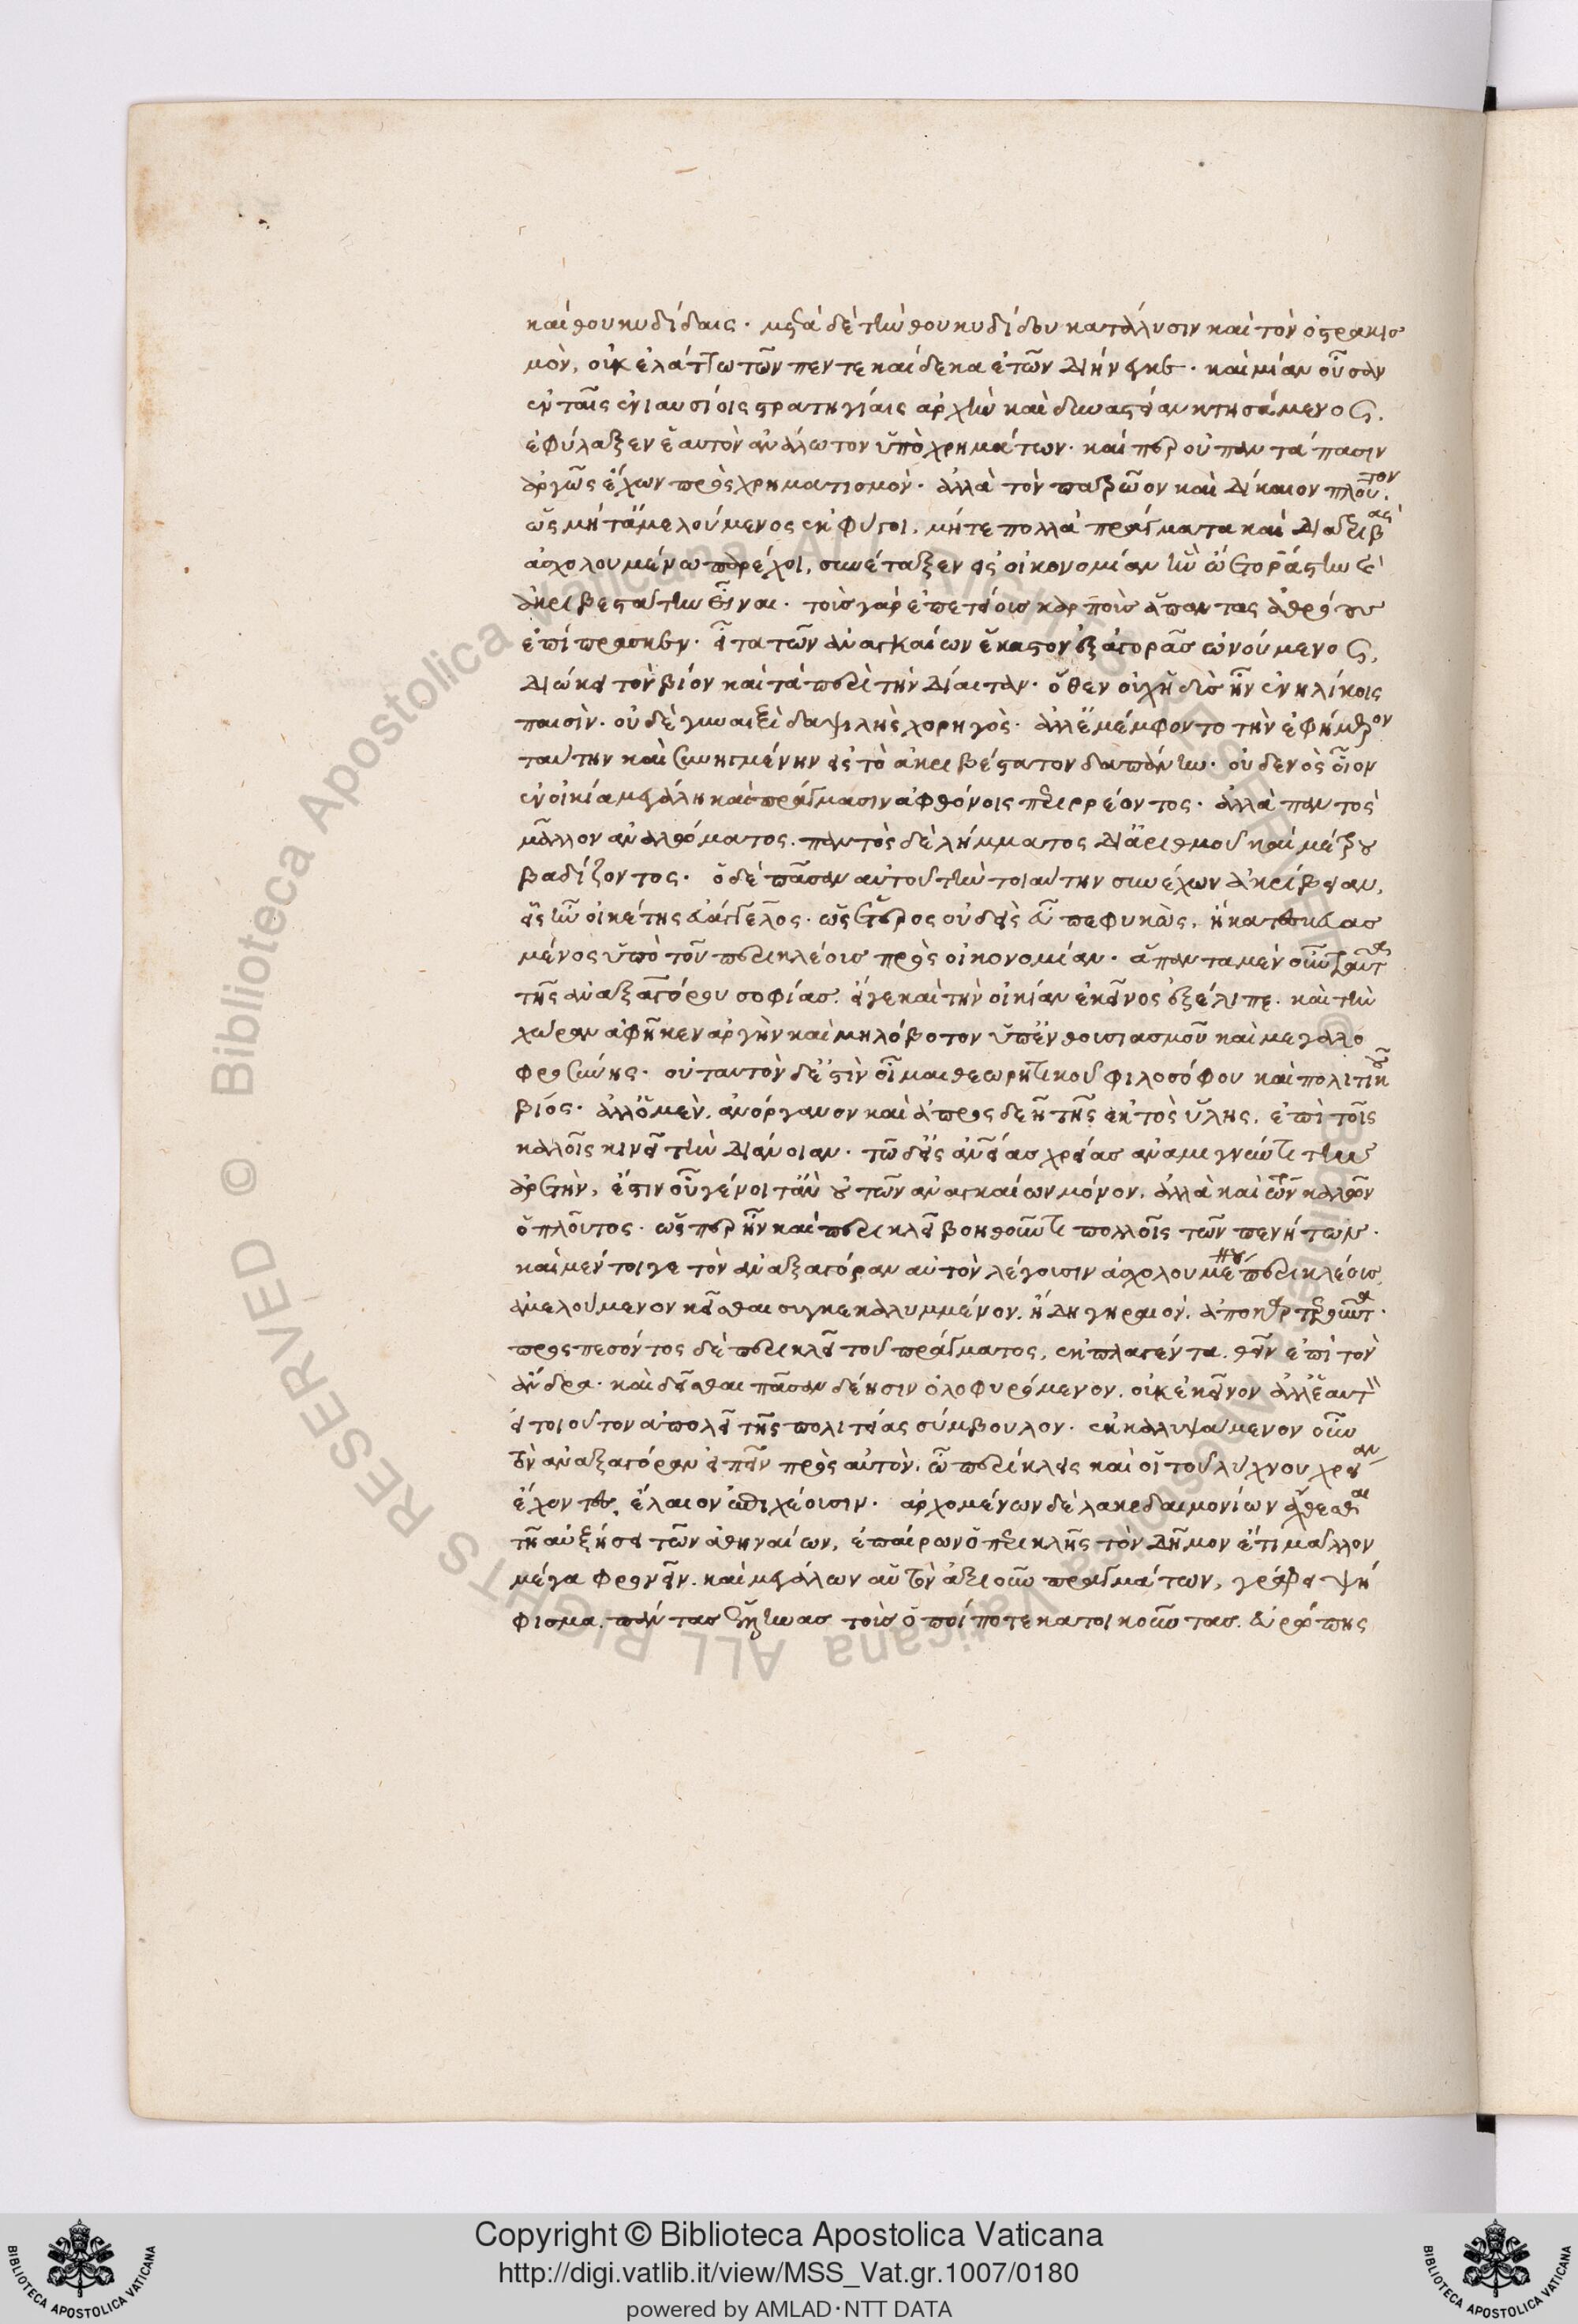 καὶ θουκυδίδαις· μετὰ δὲ τὴν θουκυδίδου κατάλυσιν καὶ τὸν ὀστρακισ
μὸν, οὐκ ἐλάττω τῶν πεντεκαίδεκα ἐτῶν διήνεγκε· καὶ μίαν οὖσαν
ἐν ταῖς ἐνιαυσίοις στρατηγίαις ἀρχὴν καὶ δυναστείαν κτησάμενος,
ἐφύλαξεν ἑαυτὸν ἀνάλωτον ὑπὸ χρημάτων· καίπερ οὐ παντάπασιν
ἀργῶς ἔχων πρὸς χρηματισμὸν· ἀλλὰ τὸν πατρῶον καὶ δίκαιον πλοῦτον·
ὡς μήτ' ἀμελούμενος ἐκφύγοι, μήτε πολλὰ πράγματα καὶ διατριβὰς
ἀσχολουμένω παρέχοι, συνέταξεν εἰς οἰκονομίαν ἣν ὤετο ῥάστην καὶ
ἀκριβεστάτην εἶναι· τοὺς γὰρ ἐπετείους καρποὺς ἅπαντας ἀθρόους
ἐπίπρασκεν· εἶτα τῶν ἀναγκαίων ἕκαστον ἐξ ἀγορᾶς ὠνούμενος,
διώκει τὸν βίον καὶ τὰ περὶ τὴν δίαιταν· ὅθεν οὐχ ἡδὺς ἦν ἐνηλίκοις
παισὶν· οὐδὲ γυναιξὶ δαψιλὴς χορηγὸς· ἀλλ' ἐμέμφοντο τὴν ἐφήμερον
ταύτην καὶ συνηγμένην εἰς τὸ ἀκριβέστατον δαπάνην· οὐδενὸς οἷον
ἐν οἰκία μεγάλη καὶ πράγμασιν ἀφθόνοις περιρρέοντος· ἀλλὰ παντὸς
μᾶλλον ἀναλώματος. παντὸς δὲ λήμματος δι' ἀριθμοῦ καὶ μέτρου
βαδίζοντος· ὁ δὲ πᾶσαν αὐτοῦ τὴν τοιαύτην συνέχων ἀκρίβειαν,
εἷς ἦν οἰκέτης εὐάγγελος· ὡς ἕτερος οὐδεὶς εὖ πεφυκὼς, ἢ κατεσκευασ
μένος ὑπὸ τοῦ περικλέους πρὸς οἰκονομίαν· ἅπαντα μὲν οὖν ταῦτα
τῆς ἀναξαγόρου σοφίας. εἴγε καὶ τὴν οἰκίαν ἐκεῖνος ἐξέλιπε. καὶ τὴν
χώραν ἀφῆκεν ἀργὴν καὶ μηλόβοτον ὑπ' ἐνθουσιασμοῦ καὶ μεγαλο
φροσύνης· οὐ ταυτὸν δέ ἐστὶν οἶμαι θεωρητικοῦ φιλοσόφου καὶ πολιτικοῦ
βίος· ἀλλ' ὁ μὲν, ἀνόργανον καὶ ἀπροσδεῆ τῆς ἐκτὸς ὕλης, ἐπὶ τοῖς
καλοῖς κινεῖ τὴν διάνοιαν· τῶ δ' εἰς ἀνθρωπείας χρείας ἀναμιγνύντι τὴν
ἀρετὴν, ἔστιν οὗ γένοιτ' ἂν οὐ τῶν ἀναγκαίων μόνον, ἀλλὰ καὶ τῶν καλῶν
ὁ πλοῦτος· ὥσπερ ἦν καὶ περικλεῖ βοηθοῦντι πολλοῖς τῶν πενήτων·
καὶ μέντοι γε τὸν ἀναξαγόραν αὐτὸν λέγουσιν ἀσχολουμένου περικλέους
ἀμελούμενον κεῖσθαι συγκεκαλυμμένον, ἤδη γηραιὸν, ἀποκαρτεροῦντα·
προσπεσόντος δὲ περικλεῖ τοῦ πράγματος, ἐκπλαγέντα. θεῖν ἐπὶ τὸν
ἄνδρα· καὶ δεῖσθαι πᾶσαν δέησιν ὀλοφυρόμενον, οὐκ ἐκεῖνον ἀλλ' ἑαυτὸν
εἰ τοιοῦτον ἀπολεῖ τῆς πολιτείας σύμβουλον· ἐκκαλυψάμενον οὖν
τὸν ἀναξαγόραν εἰπεῖν πρὸς αὐτὸν, ὦ περίκλεις καὶ οἱ τοῦ λύχνου χρείαν
ἔχοντες, ἔλαιον ἐπιχέουσιν· ἀρχομένων δὲ λακεδαιμονίων ἄχθεσθαι
τῆ αὐξήσει τῶν ἀθηναίων, ἐπαίρων ὁ περικλῆς τὸν δῆμον ἔτι μᾶλλον
μέγα φρονεῖν. καὶ μεγάλων αὑτὸν ἀξιοῦν πραγμάτων, γράφει ψή
φισμα. πάντας ἕλληνας τοὺς ὁποίποτε κατοικοῦντας. εὐρώπης
© Biblioteca Apostolica Vaticana ALL RIGHTS RESERVED
Copyright © Biblioteca Apostolica Vaticana
http://digi.vatlib.it/view/MSS_Vat.gr.1007/0180
powered by AMLAD·NTT DATA
BIBLIOTECA APOSTOLICA VATICANA
BIBLIOTECA APOSTOLICA VATICANA